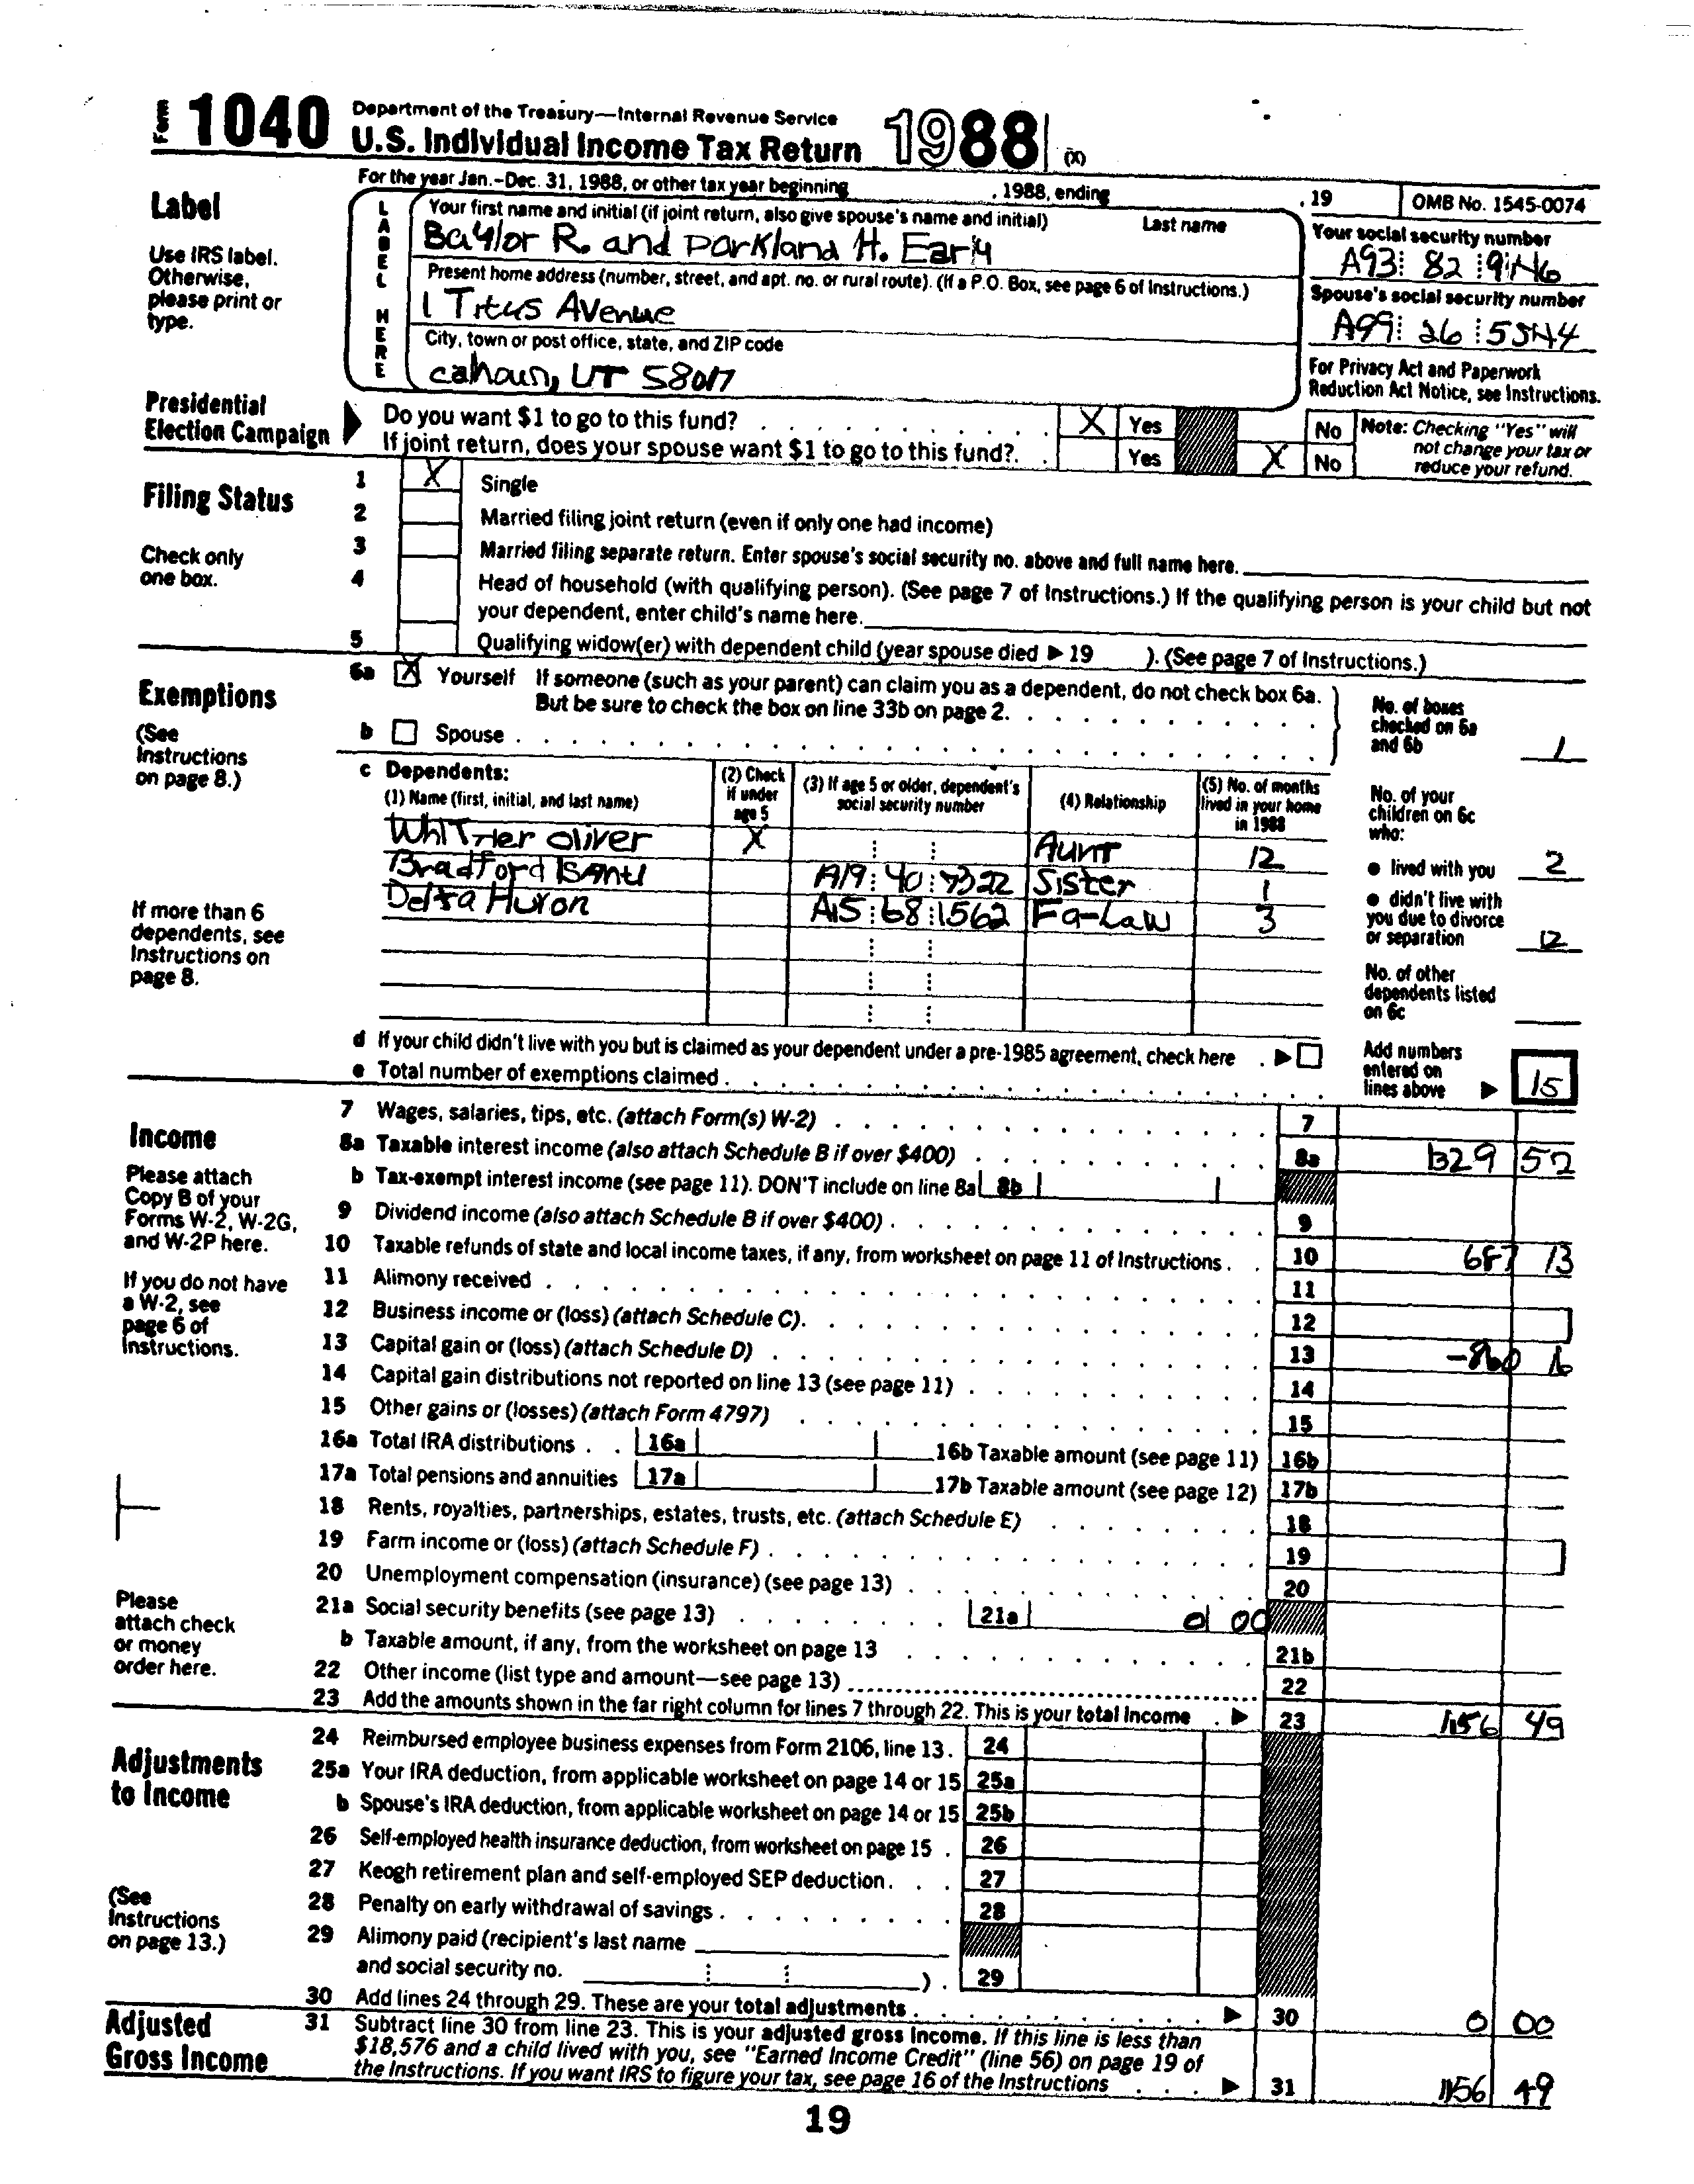 Form 1040 Department of the Treasury—Internal Revenue Service
U.S. Individual Income Tax Return 1988 (X)
For the year Jan.-Dec. 31, 1988, or other tax year beginning , 1988, ending , 19 OMB No. 1545-0074
Label
Use IRS label.
Otherwise,
please print or
type.
LABEL HERE
Your first name and initial (if joint return, also give spouse's name and initial) Last name
Baylor R. and Parkland H. Early
Your social security number
A93 82
Present home address (number, street, and apt. no. or rural route). (If a P.O. Box, see page 6 of Instructions.)
1 Titus Avenue
Spouse's social security number
A99 26
City, town or post office, state, and ZIP code
Calhoun, UT 58017
For Privacy Act and Paperwork
Reduction Act Notice, see Instructions.
Presidential
Election Campaign
Do you want $1 to go to this fund? X Yes No
If joint return, does your spouse want $1 to go to this fund? Yes X No
Note: Checking "Yes" will
not change your tax or
reduce your refund.
Filing Status
Check only
one box.
1 X Single
2 Married filing joint return (even if only one had income)
3 Married filing separate return. Enter spouse's social security no. above and full name here.
4 Head of household (with qualifying person). (See page 7 of Instructions.) If the qualifying person is your child but not
your dependent, enter child's name here.
5 Qualifying widow(er) with dependent child (year spouse died ▶ 19 ). (See page 7 of Instructions.)
Exemptions
(See
Instructions
on page 8.)
6a X Yourself If someone (such as your parent) can claim you as a dependent, do not check box 6a.
But be sure to check the box on line 33b on page 2.
b Spouse
No. of boxes
checked on 6a
and 6b 1
c Dependents:
(1) Name (first, initial, and last name)
(2) Check
if under
age 5
(3) If age 5 or older, dependent's
social security number
(4) Relationship
(5) No. of months
lived in your home
in 1988
Whittier Oliver X Aunt 12
Bradford Isanti A19 40 7322 Sister 1
Delta Huron A15 68 1562 Fa-Law 3
If more than 6
dependents, see
Instructions on
page 8.
No. of your
children on 6c
who:
● lived with you 2
● didn't live with
you due to divorce
or separation 12
No. of other
dependents listed
on 6c
d If your child didn't live with you but is claimed as your dependent under a pre-1985 agreement, check here ▶
e Total number of exemptions claimed
Add numbers
entered on
lines above ▶ 15
Income
Please attach
Copy B of your
Forms W-2, W-2G,
and W-2P here.
If you do not have
a W-2, see
page 6 of
Instructions.
Please
attach check
or money
order here.
7 Wages, salaries, tips, etc. (attach Form(s) W-2) 7
8a Taxable interest income (also attach Schedule B if over $400) 8a 1329 52
b Tax-exempt interest income (see page 11). DON'T include on line 8a 8b
9 Dividend income (also attach Schedule B if over $400) 9
10 Taxable refunds of state and local income taxes, if any, from worksheet on page 11 of Instructions 10 687 13
11 Alimony received 11
12 Business income or (loss) (attach Schedule C) 12
13 Capital gain or (loss) (attach Schedule D) 13 -860 16
14 Capital gain distributions not reported on line 13 (see page 11) 14
15 Other gains or (losses) (attach Form 4797) 15
16a Total IRA distributions 16a 16b Taxable amount (see page 11) 16b
17a Total pensions and annuities 17a 17b Taxable amount (see page 12) 17b
18 Rents, royalties, partnerships, estates, trusts, etc. (attach Schedule E) 18
19 Farm income or (loss) (attach Schedule F) 19
20 Unemployment compensation (insurance) (see page 13) 20
21a Social security benefits (see page 13) 21a 0 00
b Taxable amount, if any, from the worksheet on page 13 21b
22 Other income (list type and amount—see page 13) 22
23 Add the amounts shown in the far right column for lines 7 through 22. This is your total income ▶ 23 1156 49
Adjustments
to Income
(See
Instructions
on page 13.)
24 Reimbursed employee business expenses from Form 2106, line 13 24
25a Your IRA deduction, from applicable worksheet on page 14 or 15 25a
b Spouse's IRA deduction, from applicable worksheet on page 14 or 15 25b
26 Self-employed health insurance deduction, from worksheet on page 15 26
27 Keogh retirement plan and self-employed SEP deduction 27
28 Penalty on early withdrawal of savings 28
29 Alimony paid (recipient's last name
and social security no. ) 29
30 Add lines 24 through 29. These are your total adjustments ▶ 30 0 00
Adjusted
Gross Income
31 Subtract line 30 from line 23. This is your adjusted gross income. If this line is less than
$18,576 and a child lived with you, see "Earned Income Credit" (line 56) on page 19 of
the Instructions. If you want IRS to figure your tax, see page 16 of the Instructions ▶ 31 1156 49
19